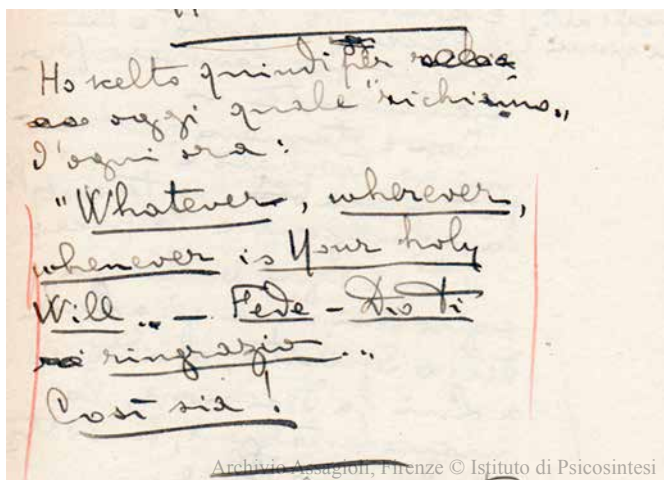 Ho scelto quindi per
oggi quale "richiamo„
d'ogni ora:
"Whatever, wherever,
whenever is Your holy
Will„ – Fede – Dio Ti
ringrazio„
Così sia!
Archivio Assagioli, Firenze © Istituto di Psicosintesi